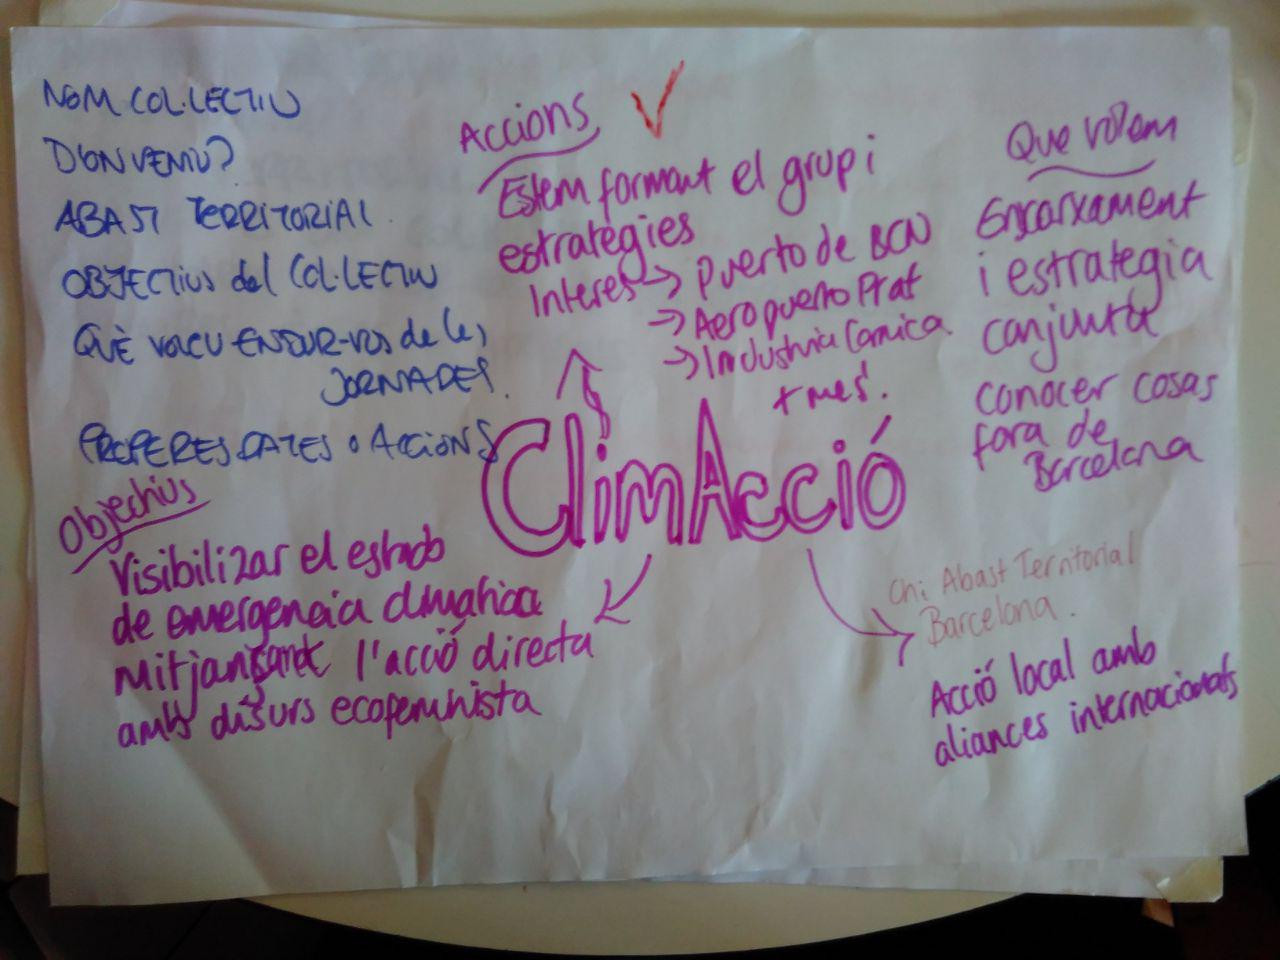 NOM COL·LECTIU
D'ON VENIU?
ABAST TERRITORIAL
OBJECTIUS del COL·LECTIU
QUÈ VOLEU ENDUR-VOS de les
JORNADES.
PROPERES DATES o ACCIONS
Accions
Estem formant el grup i
estratègies
Interes → puerto de BCN
→ Aeropuerto Prat
→ Industria Carnica
+ més.
Que volem
Enxarxament
i estrategia
conjunta
conocer cosas
fora de
Barcelona
ClimAcció
Objectius
Visibilizar el estado
de emergencia climatica
Mitjançant l'acció directa
amb disurs ecofeminista
Chi Abast Territorial
Barcelona.
Acció local amb
aliances internacionals